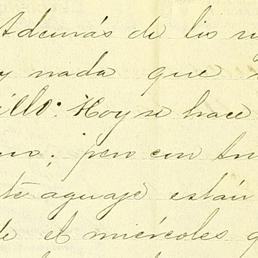 Además de lis
y nada que
illo: Hoy se hace
; pero con
te aguaje están
de el miércoles